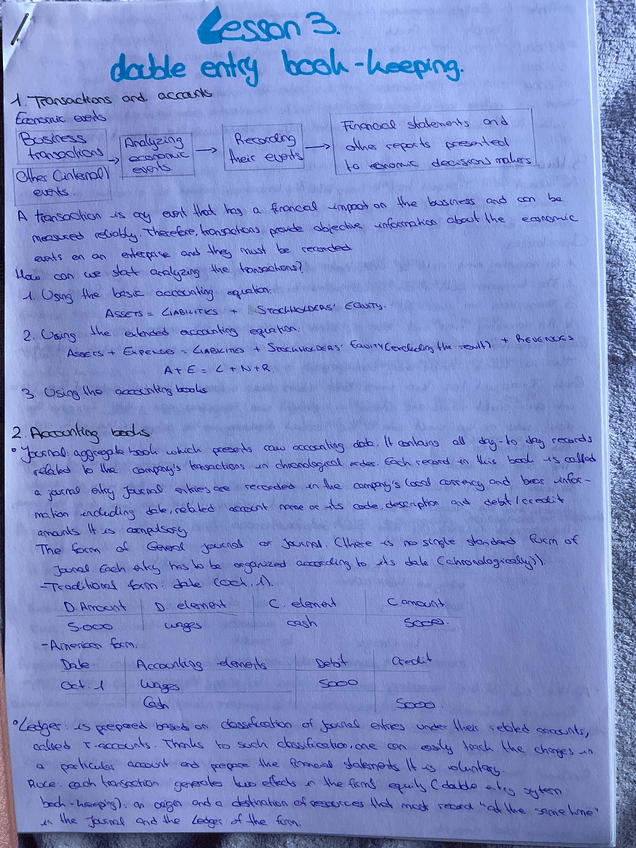 Lesson 3.
double entry book-keeping.
1. Transactions and accounts
Economic events
Business transactions
Other (internal) events.
→ Analyzing economic events
→ Recording their events
→ Financial statements and other reports presented to economic decisions makers.
A transaction is any event that has a financial impact on the business and can be
measured reliably. Therefore, transactions provide objective information about the economic
events on an enterprise and they must be recorded
How can we start analyzing the transactions?
1. Using the basic accounting equation:
ASSETS = LIABILITIES + STOCKHOLDERS' EQUITY.
2. Using the extended accounting equation:
ASSETS + EXPENSES = LIABILITIES + STOCKHOLDERS' EQUITY (excluding the result) + REVENUES
A+E = L+N+R
3. Using the accounting books
2. Accounting books
• Journal: aggregate book which presents raw accounting data. It contains all day-to day records
related to the company's transactions in chronological order. Each record in this book is called
a journal entry. Journal entries are recorded in the company's local currency and bear infor-
mation including date, related account name or its code, description and debit/credit
amounts. It is compulsory.
The form of General journal or Journal. (there is no single standard form of
Journal. Each entry has to be organized according to its date (chronologically)).
-Traditional form: date (Oct. 1).
D. Amount D. element C. element C amount
5.000 wages cash 5000.
-American form.
Date Accounting elements Debit Credit
Oct. 1 Wages 5000
Cash 5000.
• Ledger: is prepared based on classification of journal entries under their related accounts,
called T-accounts. Thanks to such classification, one can easily track the changes in
a particular account and prepare the financial statements. It is voluntary.
Rule: each transaction generates two effects in the firm's equity (double entry system
book-keeping): an origin and a destination of resources that must record "at the same time"
in the Journal and the Ledger of the firm.